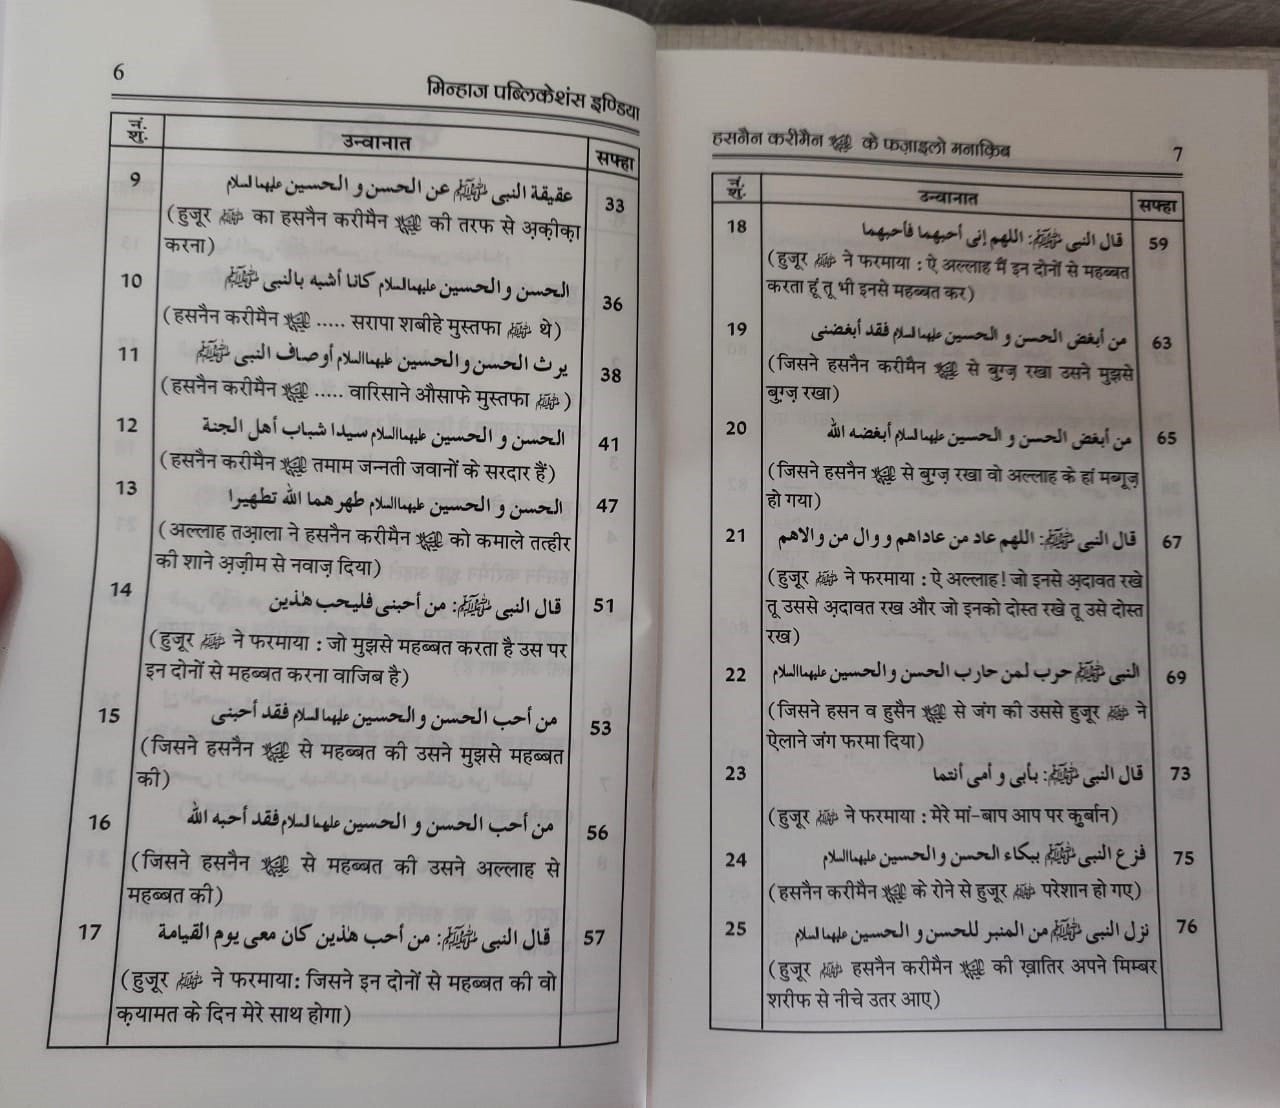 6
मिन्हाज पब्लिकेशंस इण्डिया
नं. शु.
उन्वानात
सफ्हा
9
عقيقة النبى ﷺ عن الحسن و الحسين عليهما السلام
33
(हुजूर ﷺ का हसनैन करीमैन की तरफ से अ़क़ीक़ा
करना)
10
الحسن و الحسين عليهما السلام كانا أشبه بالنبى ﷺ
36
(हसनैन करीमैन ..... सरापा शबीहे मुस्तफा ﷺ थे)
11
يرث الحسن و الحسين عليهما السلام أوصاف النبى ﷺ
38
(हसनैन करीमैन ..... वारिसाने औसाफे मुस्तफा ﷺ)
12
الحسن و الحسين عليهما السلام سيدا شباب أهل الجنة
41
(हसनैन करीमैन तमाम जन्नती जवानों के सरदार हैं)
13
الحسن و الحسين عليهما السلام طهر هما الله تطهيرا
47
(अल्लाह तआ़ला ने हसनैन करीमैन को कमाले तत्हीर
की शाने अ़ज़ीम से नवाज़ दिया)
14
قال النبى ﷺ: من أحبنى فليحب هٰذين
51
(हुजूर ﷺ ने फरमाया : जो मुझसे महब्बत करता है उस पर
इन दोनों से महब्बत करना वाजिब है)
15
من أحب الحسن و الحسين عليهما السلام فقد أحبنى
53
(जिसने हसनैन से महब्बत की उसने मुझसे महब्बत
की)
16
من أحب الحسن و الحسين عليهما السلام فقد أحبه الله
56
(जिसने हसनैन से महब्बत की उसने अल्लाह से
महब्बत की)
17
قال النبى ﷺ: من أحب هٰذين كان معى يوم القيامة
57
(हुजूर ﷺ ने फरमाया: जिसने इन दोनों से महब्बत की वो
क़यामत के दिन मेरे साथ होगा)
हसनैन करीमैन के फज़ाइलो मनाक़िब
7
नं. शु.
उन्वानात
सफ्हा
18
قال النبى ﷺ: اللهم إنى أحبهما فأحبهما
59
(हुजूर ﷺ ने फरमाया : ऐ अल्लाह मैं इन दोनों से महब्बत
करता हूं तू भी इनसे महब्बत कर)
19
من أبغض الحسن و الحسين عليهما السلام فقد أبغضنى
63
(जिसने हसनैन करीमैन से बुग्ज़ रखा उसने मुझसे
बुग्ज़ रखा)
20
من أبغض الحسن و الحسين عليهما السلام أبغضه الله
65
(जिसने हसनैन से बुग्ज़ रखा वो अल्लाह के हां मब्गूज़
हो गया)
21
قال النبى ﷺ: اللهم عاد من عاداهم و وال من والاهم
67
(हुजूर ﷺ ने फरमाया : ऐ अल्लाह! जो इनसे अ़दावत रखे
तू उससे अ़दावत रख और जो इनको दोस्त रखे तू उसे दोस्त
रख)
22
النبى ﷺ حرب لمن حارب الحسن والحسين عليهما السلام
69
(जिसने हसन व हुसैन से जंग की उससे हुजूर ﷺ ने
ऐलाने जंग फरमा दिया)
23
قال النبى ﷺ: بأبى و أمى أنتما
73
(हुजूर ﷺ ने फरमाया : मेरे मां-बाप आप पर कुर्बान)
24
فزع النبى ﷺ ببكاء الحسن والحسين عليهما السلام
75
(हसनैन करीमैन के रोने से हुजूर ﷺ परेशान हो गए)
25
نزل النبى ﷺ من المنبر للحسن و الحسين عليهما السلام
76
(हुजूर ﷺ हसनैन करीमैन की ख़ातिर अपने मिम्बर
शरीफ से नीचे उतर आए)